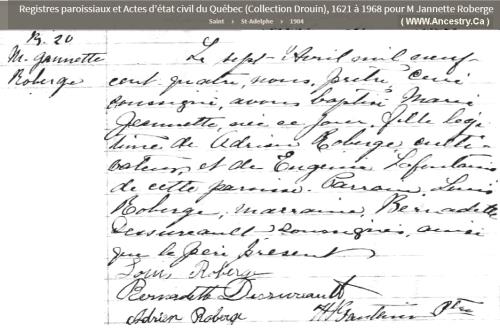 Registres paroissiaux et Actes d'état civil du Québec (Collection Drouin), 1621 à 1968 pour M Jannette Roberge
( WWW.Ancestry.Ca )
Saint › St-Adelphe › 1904
B. 20
M. Jannette
Roberge
Le sept Avril mil neuf
cent quatre, nous, prêtre curé
soussigné, avons baptisé Marie
Jeannette, née ce jour, fille légi
time de Adrien Roberge culti-
vateur, et de Eugénie Lafontaine
de cette paroisse. Parrain, Louis
Roberge, marraine, Bernadette
Dessureault soussignés, ainsi
que le père présent
Louis Roberge
Bernadette Dessureault
Adrien Roberge
Ptre